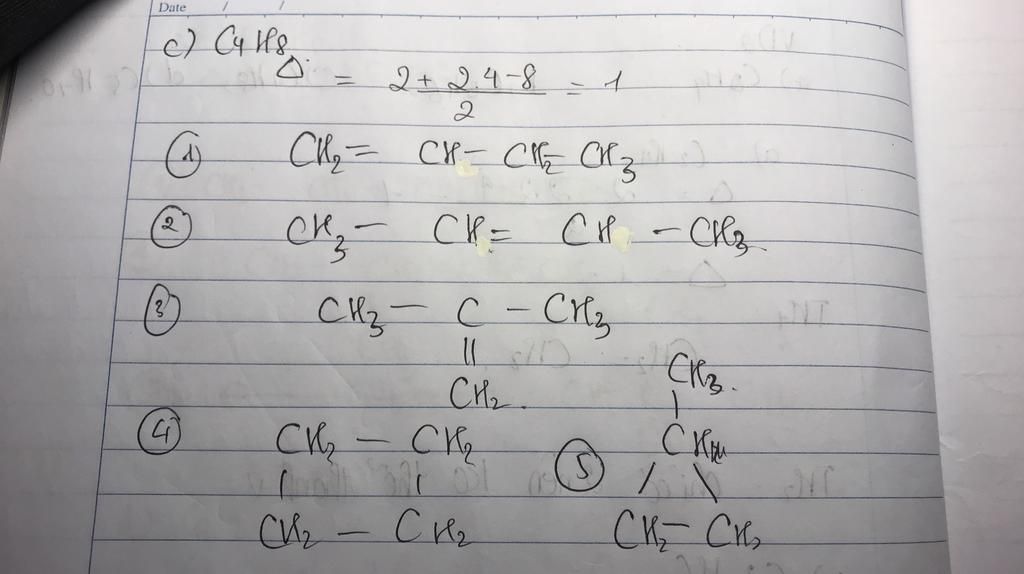 Date / /
c) C4H8
Δ = 2 + 2.4 - 8 / 2 = 1
① CH2 = CH - CH2 - CH3
② CH3 - CH = CH - CH3
③ CH3 - C - CH3
||
CH2.
④ CH2 - CH2
| |
CH2 - CH2
⑤ CH3.
|
CH
/ \
CH2 - CH2